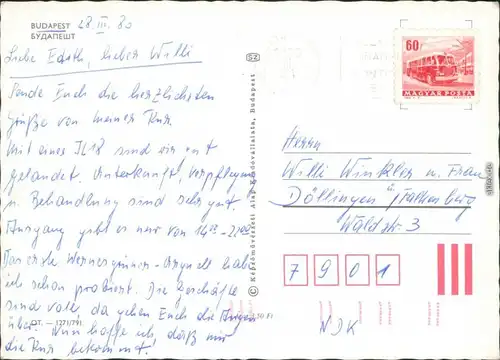 BUDAPEST 28. III. 80
БУДАПЕШТ
Liebe Edith, lieber Willi
Sende Euch die herzlichsten
Grüße von meiner Kur.
Mit einer IL 18 sind wir gut
gelandet. Unterkunft, Verpflegung
u. Behandlung sind sehr gut.
Ausgang gibt es nur von 14⁰⁰ - 21⁰⁰
Das erste habe
ich schon probiert. Die Geschäfte
sind voll, da gehen Euch die Augen
über. Nun hoffe ich, daß mir
die Kur bekommt!
OT. — 1271/791
© Képzőművészeti Alap Kiadóvállalata, Budapest
60
MAGYAR POSTA
Herrn
Willi Winkler u. Frau
Döllingen ü/Falkenberg
Waldstr. 3
7901